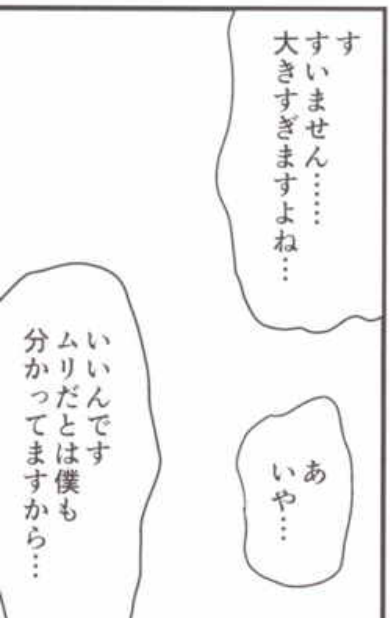 す
すいません……
大きすぎますよね…
あ
いや…
いいんです
ムリだとは僕も
分かってますから…